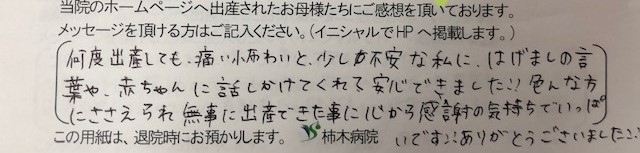 当院のホームページへ出産されたお母様たちにご感想を頂いております。
メッセージを頂ける方はご記入ください。(イニシャルでHPへ掲載します。)
何度出産しても、痛い小布わいと、少しか不安な私に、はげましの言
葉や、赤ちゃんに話しかけてくれる安心できました!!色んな方
にささえられ無事に出産できた事に心から感謝の気持ちでいっぱ
この用紙は、退院時にお預かりします。 柿木病院 いです!!ありがとうございました!!